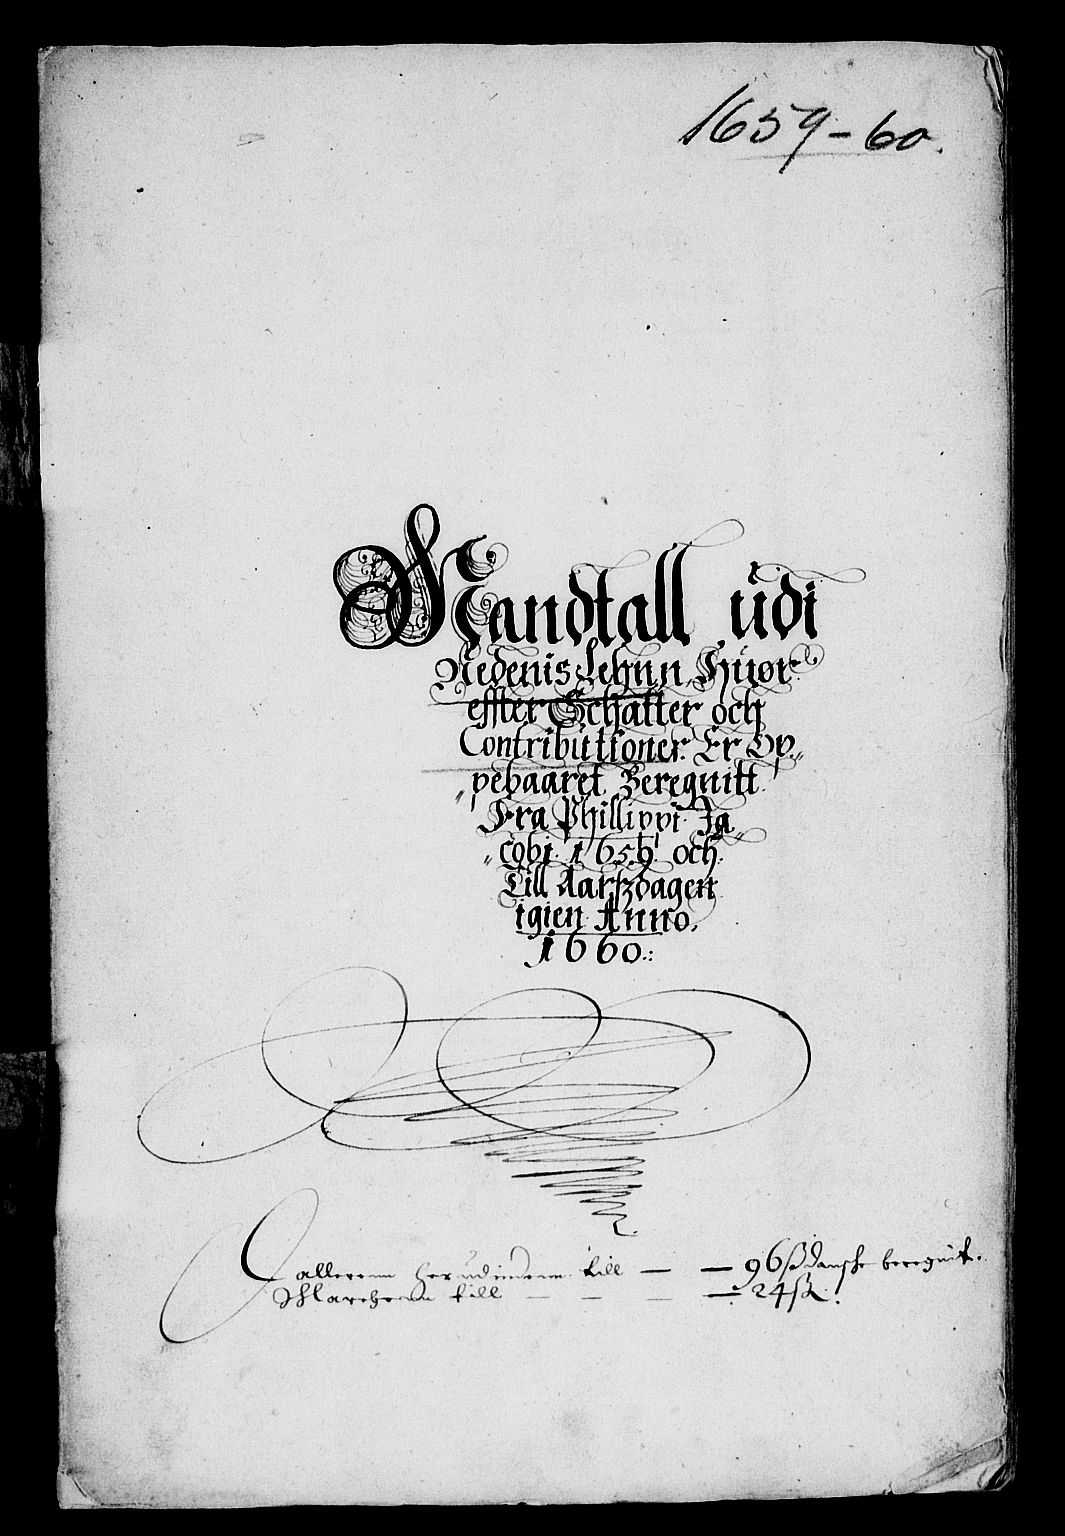 1659-60.
Mandtall udi
Nedenis Lehnn, Huor
effter Schatter och
Contributioner Er Op„
„pebaaret, Beregnitt
Fra Phillippi Ja„
„cobi 1659 och
Till Aarszdagen
igien Anno.
1660.:
dallerenn herudindenn till — — 96 ß danske beregnit.
Marchenn till — — — — 24 sk.